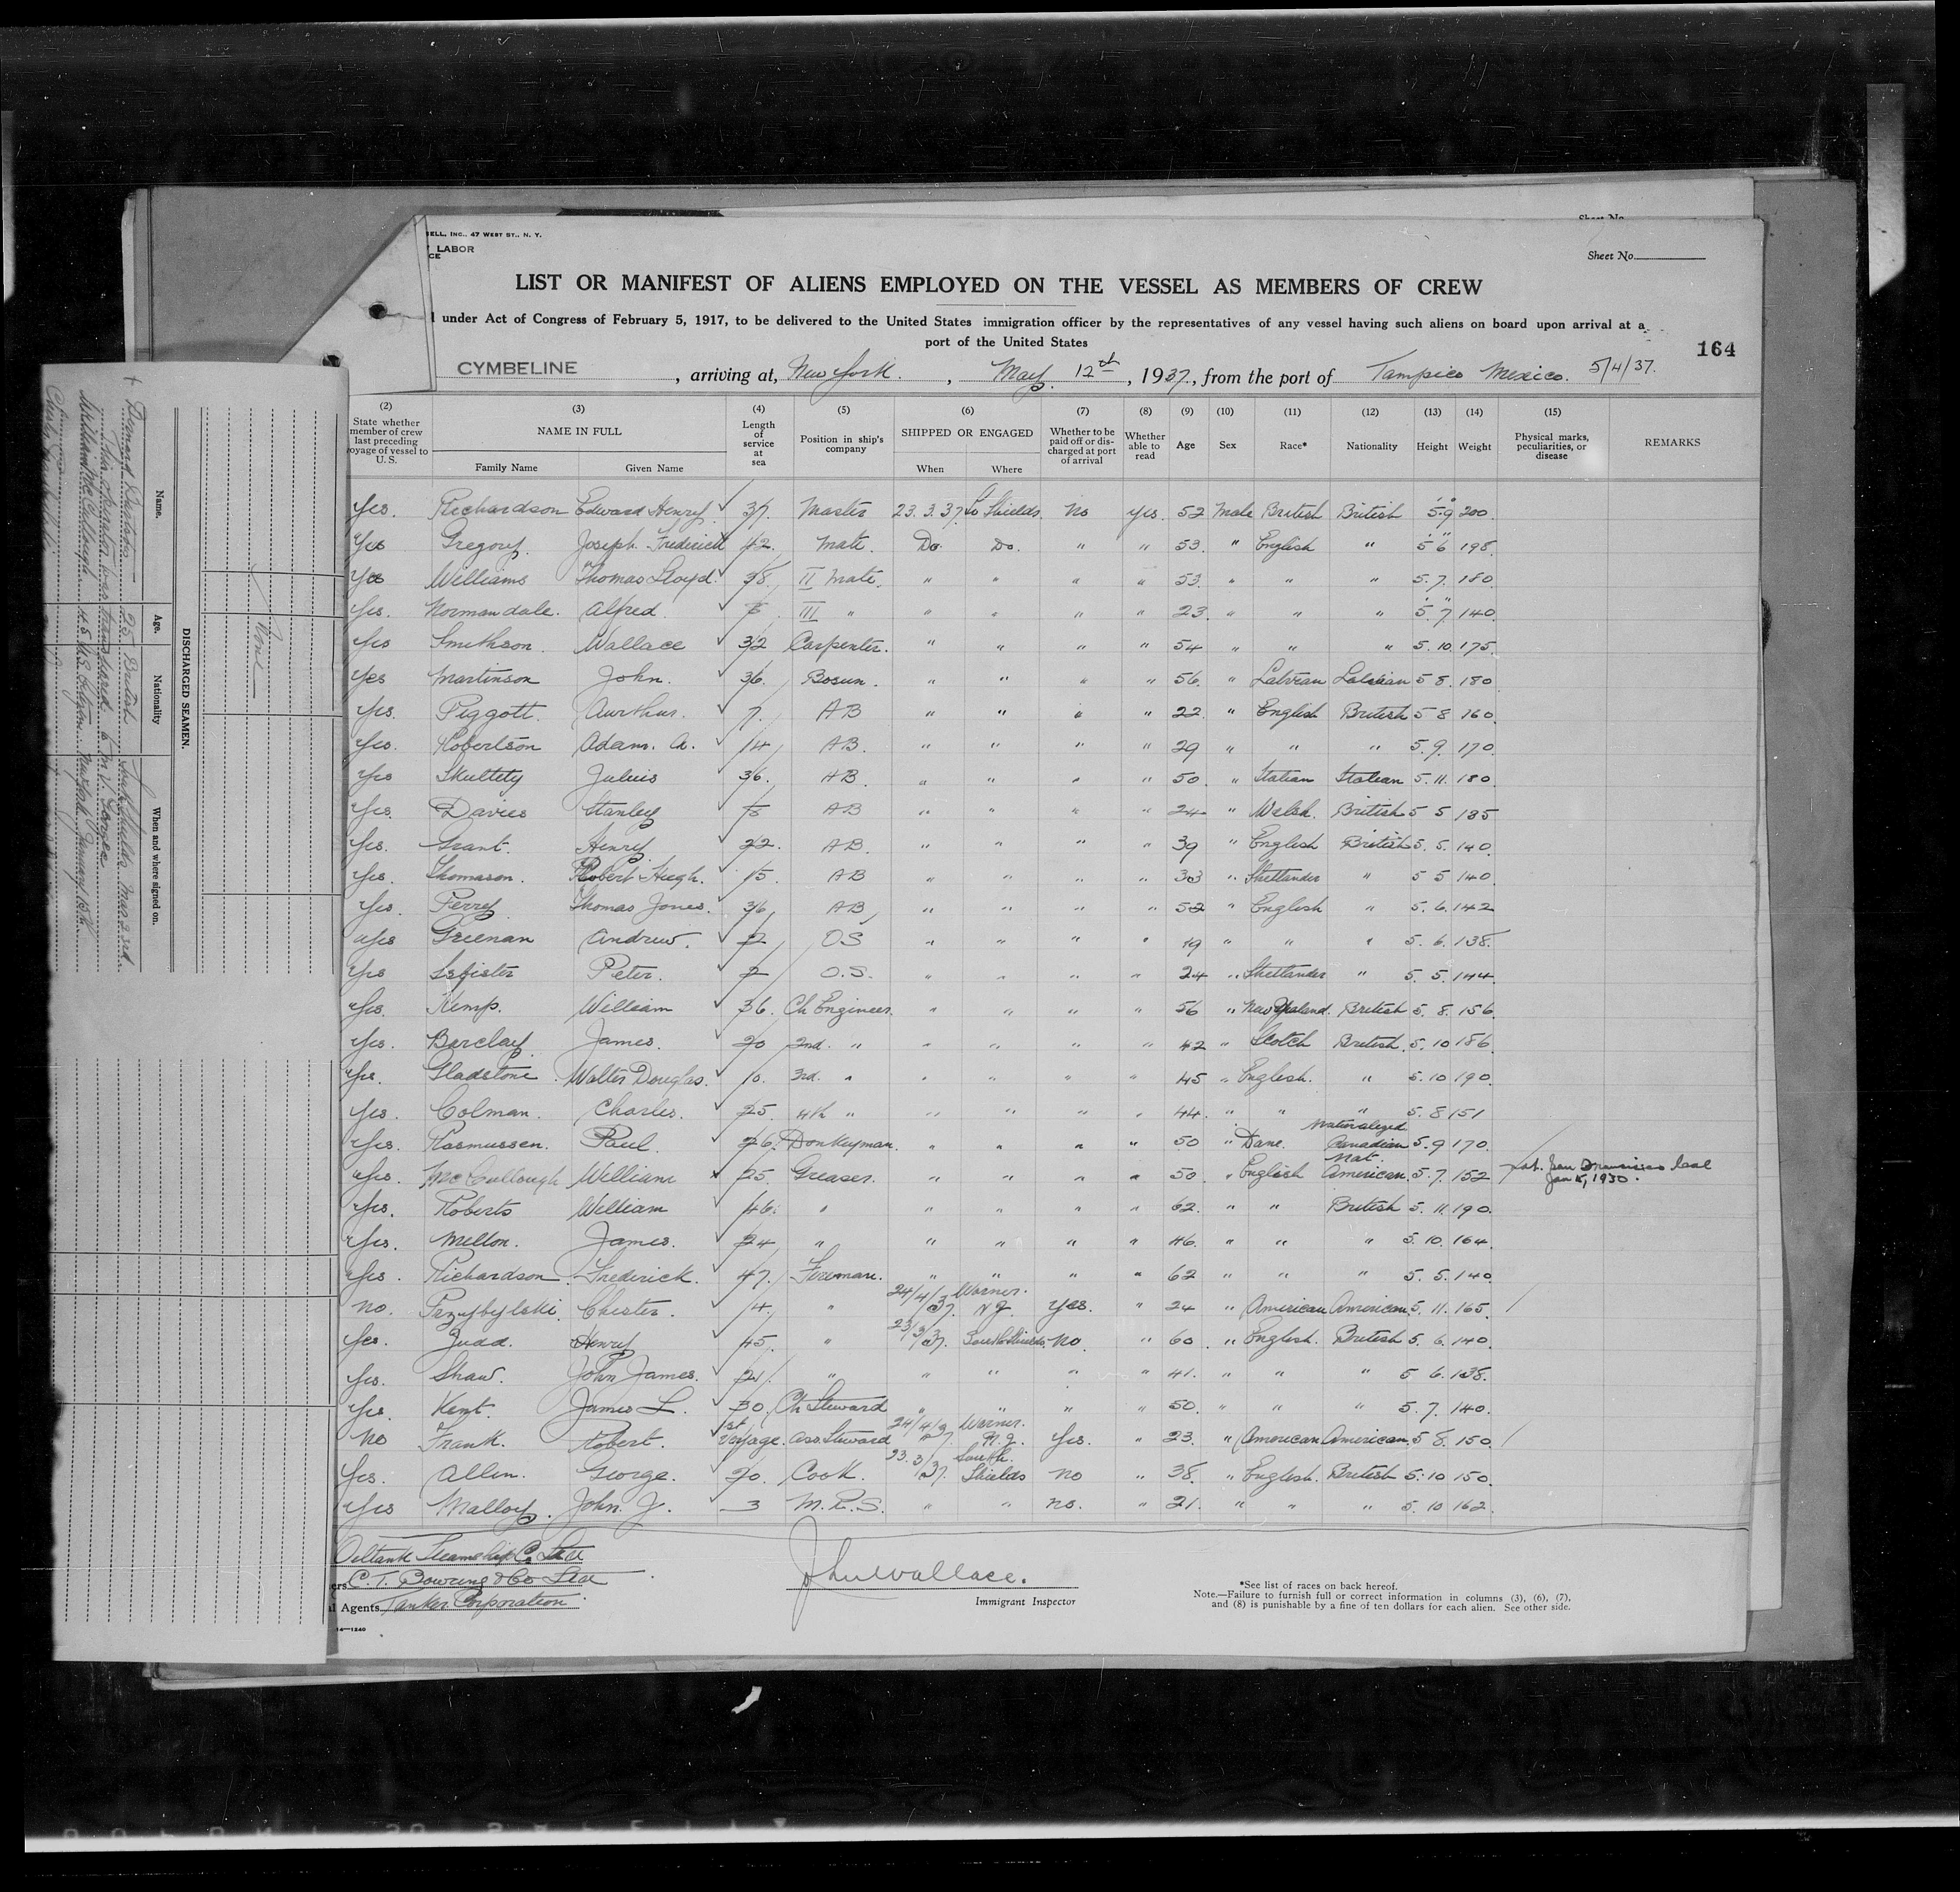 Sheet No.
SELL, INC., 47 WEST ST., N. Y.
LABOR
CE
Sheet No.
LIST OR MANIFEST OF ALIENS EMPLOYED ON THE VESSEL AS MEMBERS OF CREW
under Act of Congress of February 5, 1917, to be delivered to the United States immigration officer by the representatives of any vessel having such aliens on board upon arrival at a
port of the United States
164
CYMBELINE, arriving at, New York., May 12th, 1937., from the port of Tampico Mexico. 5/4/37.
(2) (3) (4) (5) (6) (7) (8) (9) (10) (11) (12) (13) (14) (15)
State whether member of crew last preceding voyage of vessel to U.S. NAME IN FULL Length of service at sea Position in ship's company SHIPPED OR ENGAGED Whether to be paid off or discharged at port of arrival Whether able to read Age Sex Race* Nationality Height Weight Physical marks, peculiarities, or disease REMARKS
Family Name Given Name When Where
Yes. Richardson Edward Henry ✓ 37. Master 23.3.37. So Shields. No Yes. 52 Male British British 5.9 200.
Yes Gregory. Joseph Frederick 42. Mate. Do. Do. " " 53. " English " 5 6 198.
Yes Williams Thomas Lloyd. ✓ 38. II Mate. " " " " 53. " " " 5. 7. 180
Yes. Normandale. Alfred. ✓ III " " " " " 23. " " " 5 7 140.
Yes Smithson. Wallace ✓ 32 Carpenter. " " " " 54 " " " 5. 10. 175.
Yes Martinson John. ✓ 36. Bosun. " " " " 56. " Latvian Latvian 5 8. 180
Yes. Piggott. Aurthur. ✓ 7. AB " " " " 22. " English British 5 8 160.
Yes. Robertson Adam. A. ✓ 14 AB. " " " " 29 " " " 5. 9. 170.
Yes Skultety Julius ✓ 36. AB. " " " " 50. " Italian Italian 5. 11. 180.
Yes. Davies Stanley ✓ 5 AB " " " " 24 " Welsh. British 5 5 135
Yes. Grant. Henry. ✓ 22. AB. " " " " 39 " English British 5. 5. 140.
Yes. Thomason. Robert Hugh. ✓ 15. AB " " " " 33 " Shetlander " 5 5 140.
Yes. Perry. Thomas Jones. ✓ 36. AB " " " " 52 " English " 5. 6. 142
Yes Greenan Andrew. ✓ 2 OS " " " " 19 " " " 5. 6. 138.
Yes Peter. ✓ 2 O.S. " " " " 24 " Shetlander " 5. 5. 144.
Yes. Kemp. William ✓ 36. Ch Engineer. " " " " 56 " New Zealand. British 5. 8. 156.
Yes. Barclay. James. ✓ 20 2nd. " " " " " 42 " Scotch British. 5. 10 186.
Yes. Gladstone. Walter Douglas. ✓ 10. 3rd. " " " " " 45 " English. " 5. 10 190.
Yes. Colman. Charles. ✓ 25. 4th " " " " " 44. " " " 5. 8 151
Yes. Rasmussen. Paul. ✓ 26. Donkeyman. " " " " 50 " Dane. Naturalized Canadian 5. 9 170.
Yes. McCullough William x 25. Greaser. " " " " 50. " English Nat. American. 5. 7. 152 Nat. San Francisco Local Jan 5, 1930.
Yes. Roberts William ✓ 46. " " " " " 62. " " British 5. 11. 190.
Yes. Mellon. James. ✓ 24 " " " " " 46. " " " 5. 10. 164.
Yes. Richardson. Frederick. ✓ 47. Fireman. " " " " 62 " " " 5. 5. 140.
No. Przybylski Chester. ✓ 4. " 24/4/37. Warner. N.J. Yes. " 24 " American American. 5. 11. 165.
Yes. Judd. Henry ✓ 45. " 23/3/37. South Shields. No. " 60. " English. British 5. 6. 140.
Yes. Shaw. John James. ✓ 21. " " " " " 41. " " " 5 6. 138.
Yes. Kent. James L. ✓ 30. Ch Steward " " " " 50. " " " 5. 7. 140.
No Frank. Robert. ✓ 1st voyage. Ass. Steward 24/4/37. Warner. N.J. Yes. " 23. " American American. 5 8. 150.
Yes. Allen. George. ✓ 20. Cook. 23.3/37. South Shields No " 38. " English. British 5. 10 150.
Yes Malloy. John. J. ✓ 3 M.R.S. " " No. " 21. " " " 5. 10 162.
Oiltank Steamship Co Ltd
ers C. T. Bowring & Co Ltd
l Agents Tanker Corporation
14—1240
John Wallace.
Immigrant Inspector
*See list of races on back hereof.
Note.—Failure to furnish full or correct information in columns (3), (6), (7),
and (8) is punishable by a fine of ten dollars for each alien. See other side.
DISCHARGED SEAMEN.
Name. Age. Nationality When and where signed on.
None
25 British South Shields Mar 23rd
This Operator was transferred to M.V. George
William McCullough U.S. Citizen